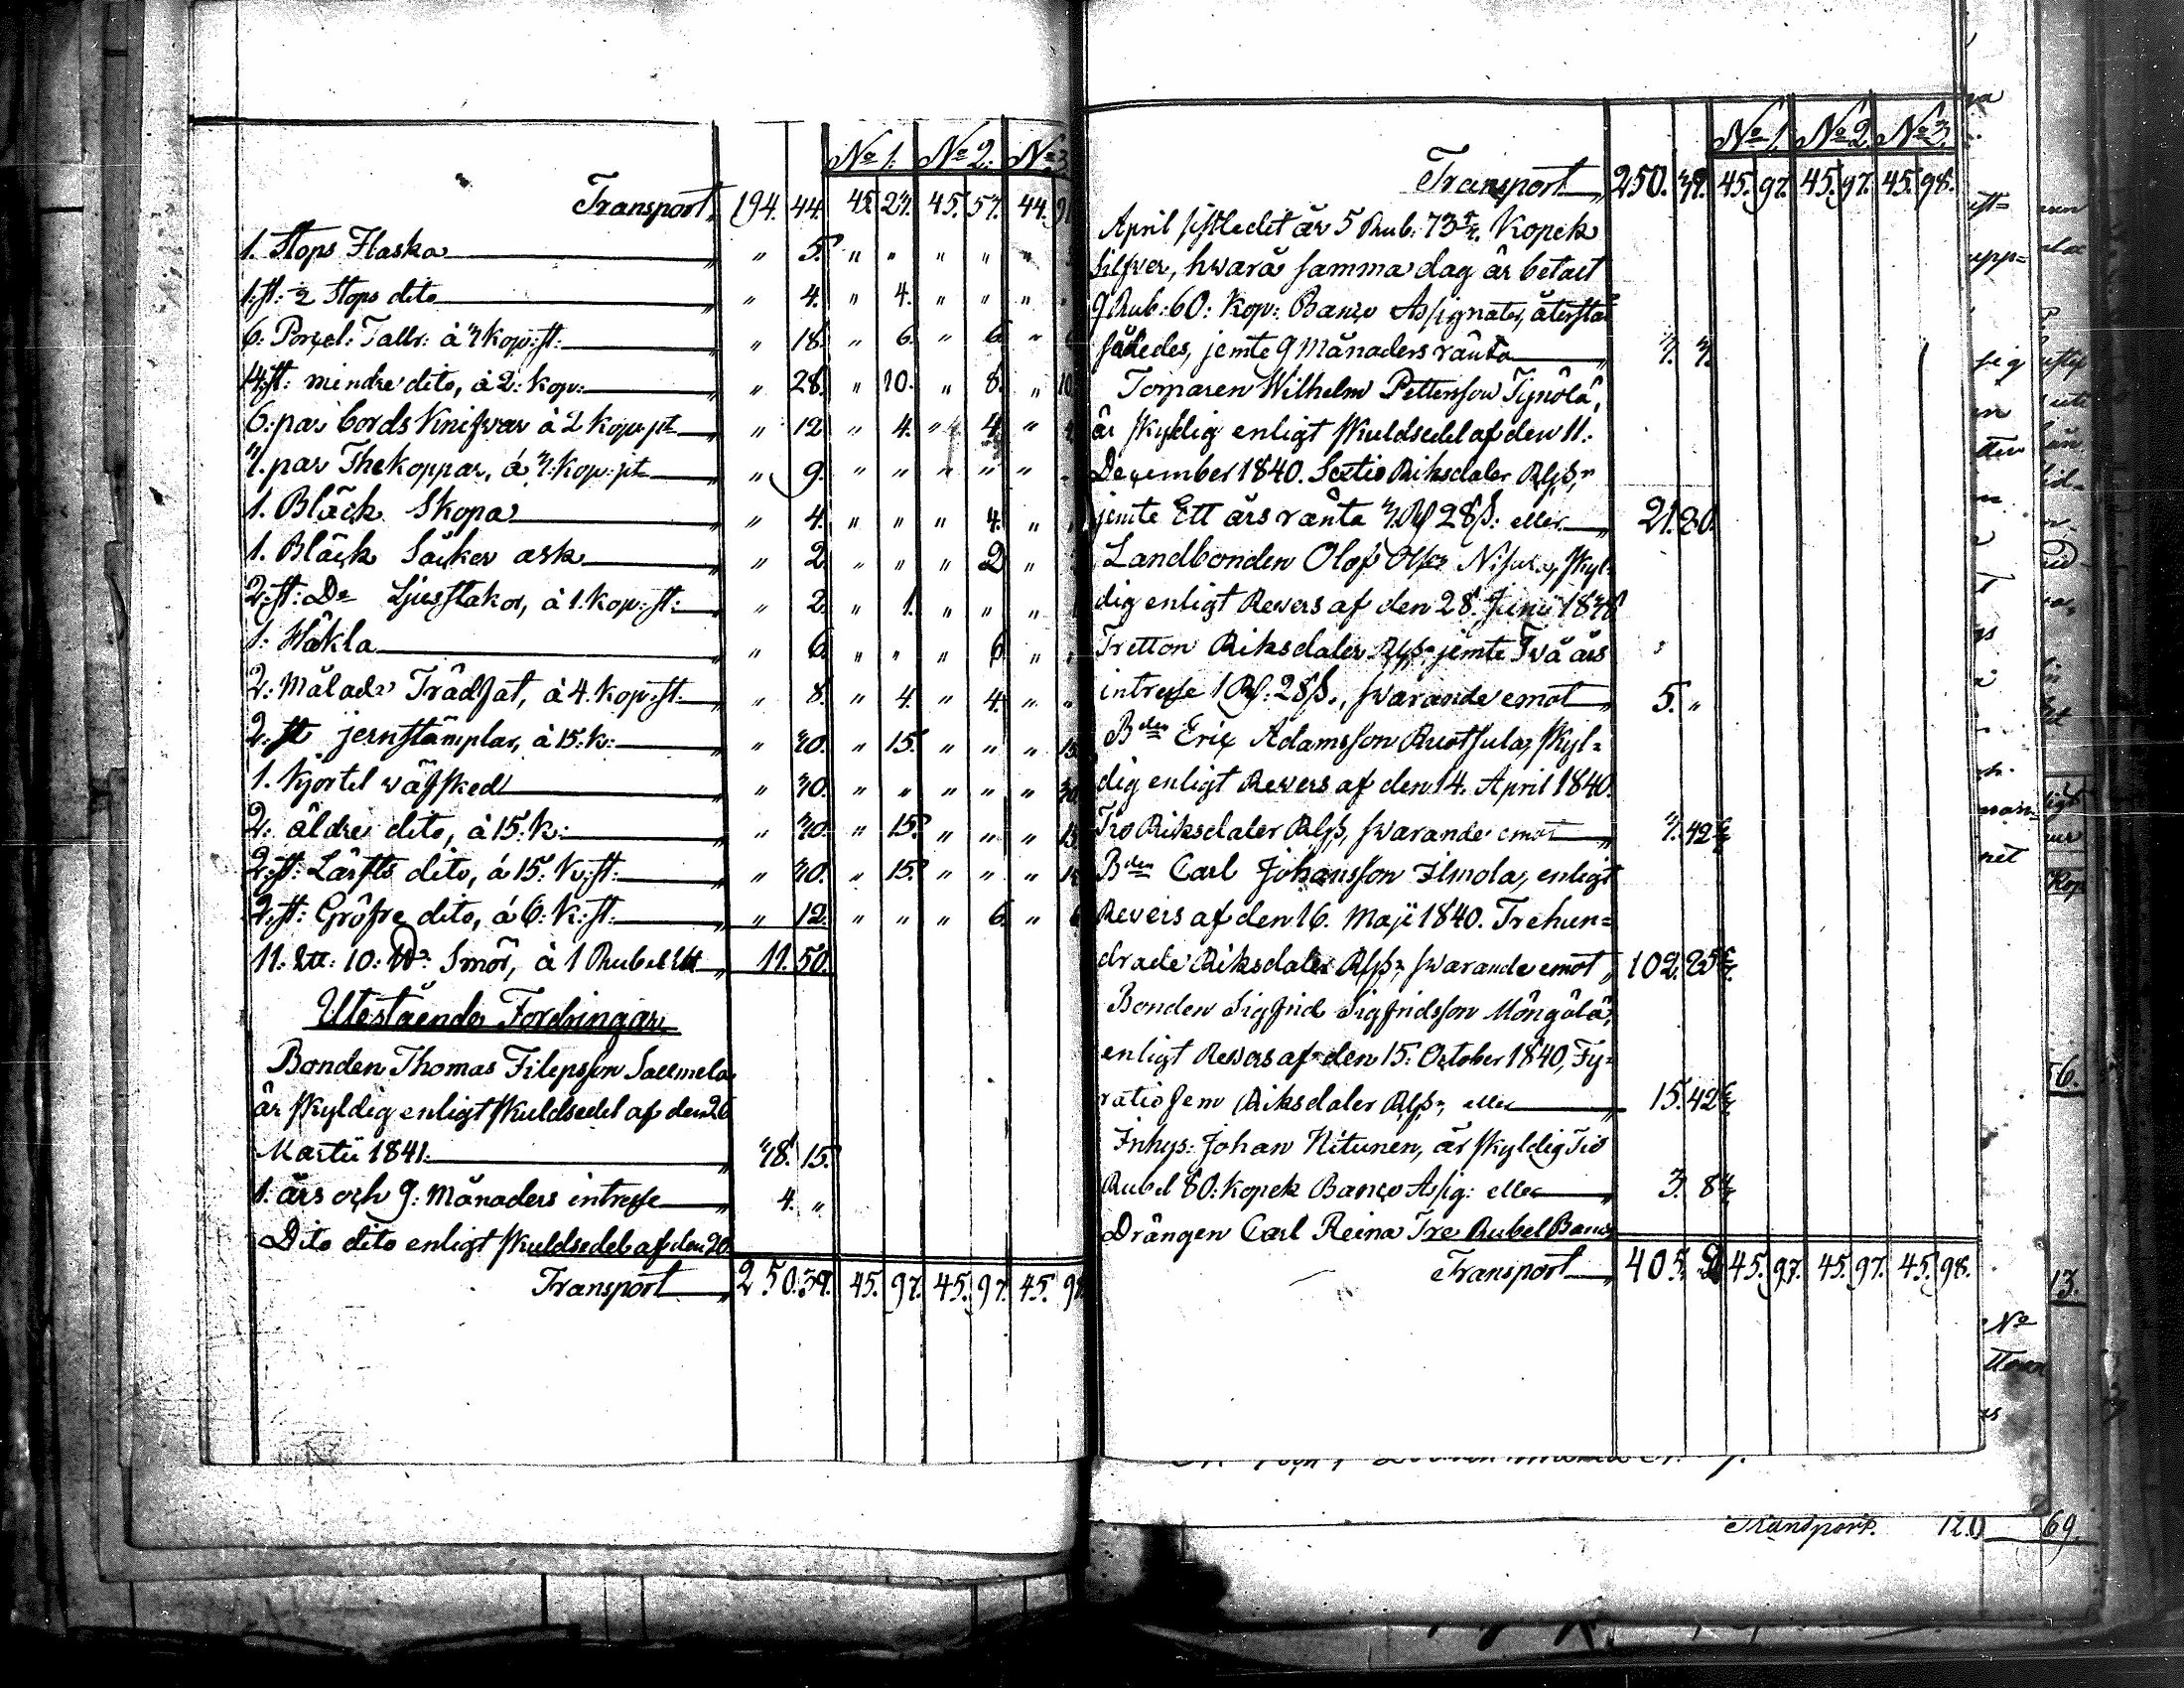 No 1. No 2. No 3
Transport 194. 44. 45. 27. 45. 57. 44. 9
1. Stops Flaska " 5. " " " " "
1: st: 2 Stops dito " 4. " 4. " " "
6: Porcel: Tallr: à 3 kop: st: " 18. " 6. " 6. "
14: st: mindre dito, à 2: kop: " 28. " 10. " 8. " 10
6: par bords Knifvar à 2 kop: pt " 12 " 4. " 4. "
3. par Thekoppar, à 3: kop: pt " 9. " " " " "
1. Bläck Skopa " 4. " " " 4. "
1. Bläck Såcker ask " 2. " " " 2 "
2: st: Do Ljusstakor, à 1. kop: st: " 2. " 1. " " "
1: Häkla " 6. " " " 6 "
2: Målade Trädfat, à 4. kop: st: " 8. " 4. " 4. " "
2: st jernstämplar, à 15: k: " 30. " 15. " " " 15
1. Kjortel wäfsked " 30. " " " " " 30
2: äldre dito, à 15: k: " 30. " 15. " " " 15
2: st: Lärfts dito, à 15: K: st: " 30. " 15. " " " 15
2: st: Gröfre dito, à 6: K: st: " 12. " " " 6 " 6
11: L℔: 10: ℔: Smör, à 1 Rubel L℔ 11. 50.
Utestående Fordringar
Bonden Thomas Filipsson Salmela
är skyldig enligt skuldsedel af den 26
Martii 1841. 38. 15.
1: års och 9: Månaders intresse 4. "
Dito dito enligt skuldsedel af den 20
Transport 250. 39. 45. 97. 45. 97. 45. 98
No 1. No 2. No 3.
Transport 250. 39. 45. 97. 45. 97. 45. 98.
April sistledit år 5 Rub: 73 5/7. Kopek
Silfver, hwarå samma dag är betalt
9 Rub: 60: Kop: Banco Assignater, återstå
således, jemte 9 Månaders ränta 3. 3.
Torparen Wilhelm Pettersson Tynölä,
är skyldig enligt skuldsedel af den 11:
December 1840. Sextio Riksdaler Rgs,
jemte Ett års ränta 3 Rd 28 s: eller 21. 80.
Landbonden Olof Olsson skyl-
dig enligt Revers af den 28. Junii 1838
Tretton Riksdaler Rgs, jemte Två års
intresse 1 Rd. 28 s., swarande emot 5. "
Bden Eric Adamsson Ruotsula, skyl-
dig enligt Revers af den 14. April 1840.
Tio Riksdaler Rgs, swarande emot 3. 42 6/7
Bden Carl Johansson Ilmola, enligt
Revers af den 16. Maji 1840. Trehun-
drade Riksdaler Rgs, swarande emot 102. 85 5/7.
Bonden Sigfrid Sigfridsson Mongölä,
enligt Revers af den 15: October 1840, Fy-
ratio fem Riksdaler Rgs, eller 15. 42 6/7
Inhys: Johan Hitunen, är skyldig Tio
Rubel 80: Kopek Banco Assig: eller 3. 8 4/7
Drängen Carl Reina Tre Rubel Banco
Transport 405. 45. 97. 45. 97. 45. 98.
Transport. 120 69.